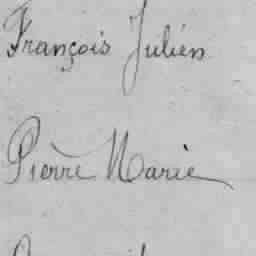 François Julien
Pierre Marie